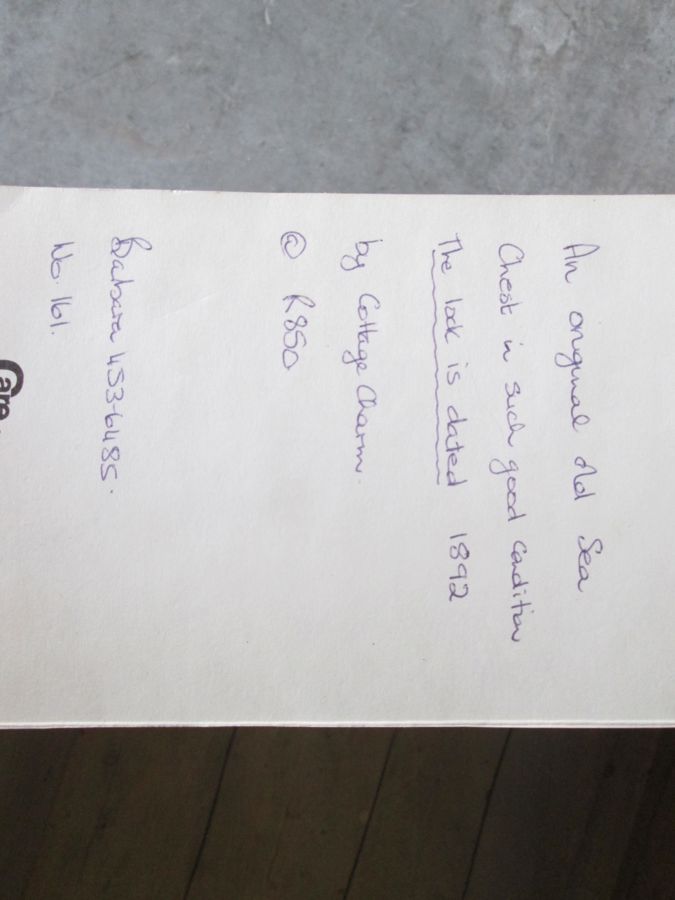 An original old Sea
Chest in such good condition
The lock is dated 1892
by Cottage Charm.
@ R850
Babara 4536485.
No. 161.
Care